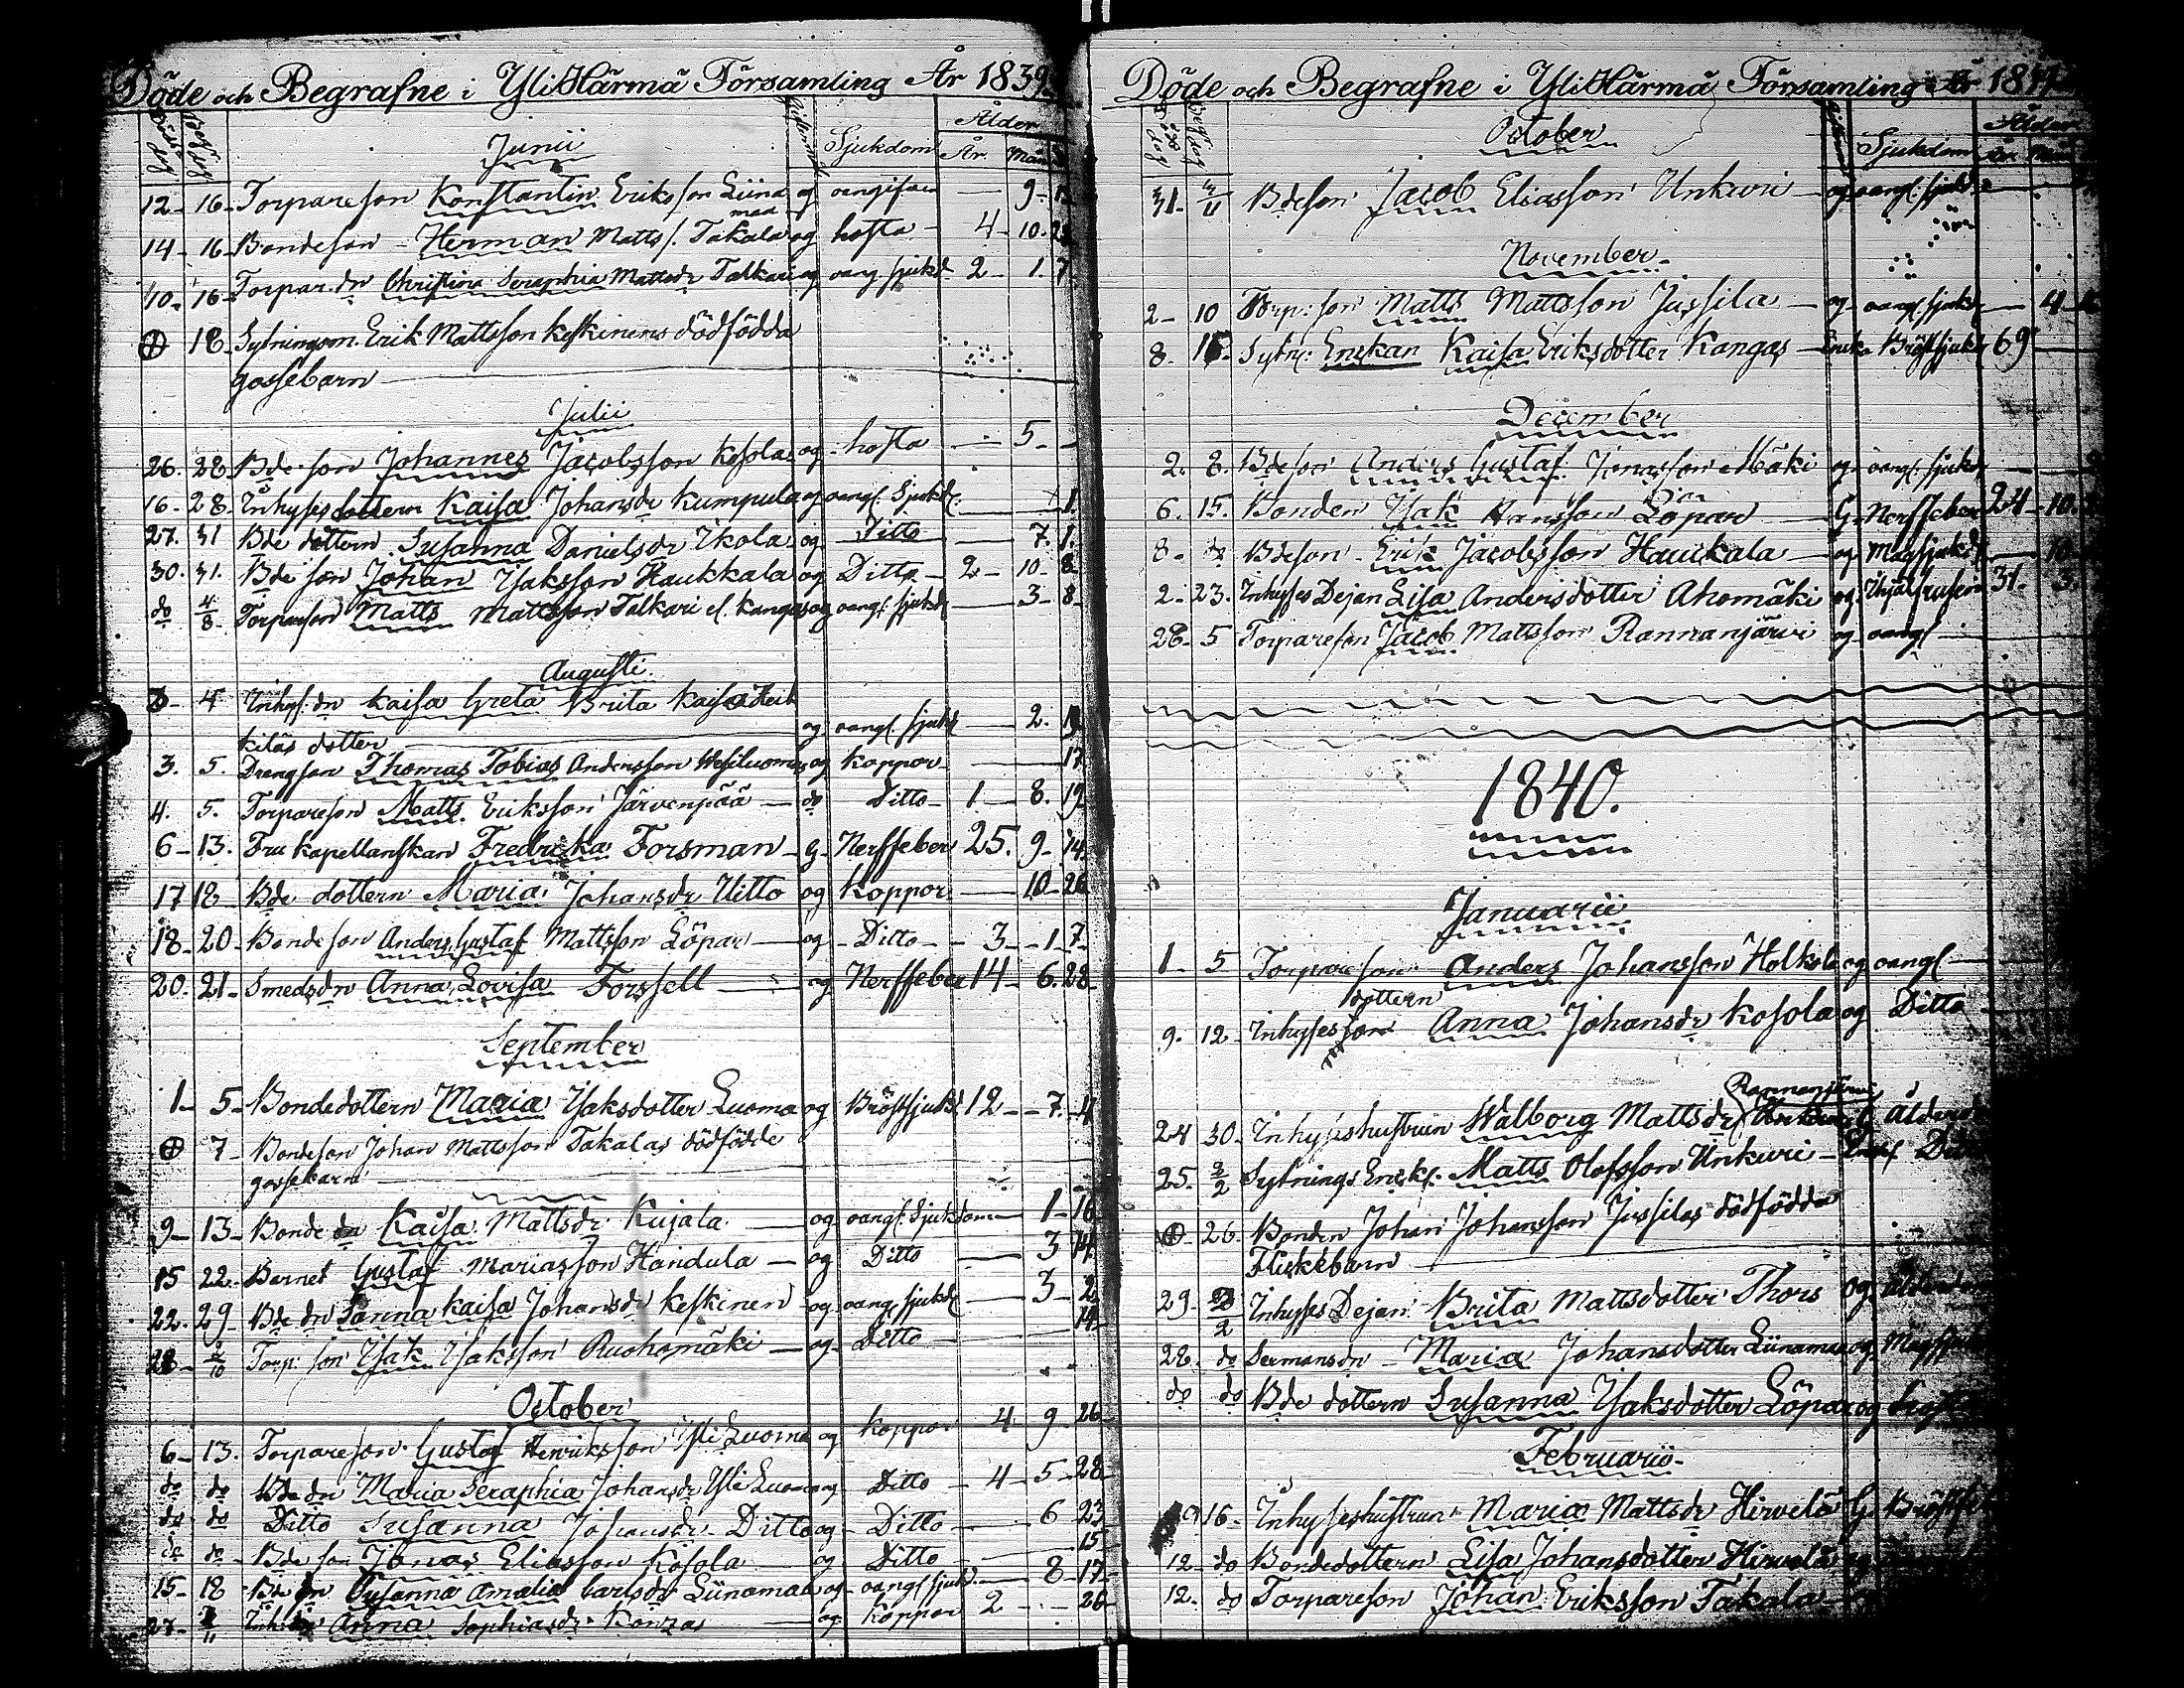 Döde och Begrafne i YliHärmä Församling År 1839
Döds dag Begr. dag Sjukdom Ålder
År Mån
Junii
12 - 16 - Torpareson Konstantin Eriksson Liina og oangifven — 9 -
maa
14 - 16 - Bondeson - Herman Matts s. Takala og hosta - 4 - 10 - 23
10 - 16 - Torpar. dn Christina Seraphia Mattsdr Talkari og oang. sjukd 2 - 1. 7
18 - Sytningsm. Erik Mattsson Keskinens dödfödda
gossebarn
Julii
26. 28 Bde-son Johannes Jacobsson Kosola og - hosta — 5 -
16 - 28 - Inhyses dottern Kaisa Johansdr Kumpula og oangl. Sjukd. — 1.
27. 31 Bde dottern Susanna Danielsdr Ikola og - Ditto — 7. 1.
30. 31. Bde son Johan Isaksson Haukkala og Ditto - 2 - 10 - 8
do 4/8 - Torpareson Matts Mattsson Talkari el. Kangas og oangl. sjukd — 3 - 8
Augusti
3 - 4 - Inhys. dn Kaisa Greta Brita Kaisa Heik
kiläs dotter — og oangl. sjukd — 2.
3. 5. Drengson Thomas Tobias Andersson Wesiluoma og Koppor — 17
4. 5. Torpareson Matts Eriksson Järvenpää — do Ditto - 1 — 8. 19
6 - 13. Fru Kapellanskan Fredricka Forsman - G - Nerffeber 25. 9 - 14
17 18 - Bde dottern Maria Johansdr Uitto og Koppor — 10 - 26
18 - 20 - Bondeson Anders Gustaf Mattsson Löpar — og - Ditto - - 3 - 1 - 7
20. 21 - Smedsdn Anna Lovisa Forssell — og Nerffeber 14 - 6. 28
September
1 - 5 - Bondedottern Maria Isaksdotter Luoma og Bröstsjukd. 12 - 7. 4
7 - Bondeson Johan Mattsson Takalas dödfödde
gossebarn
9 - 13 - Bonde dn Kaisa Mattsdr Kujala — og oangl. Sjukdom — 1 - 16
15 22. Barnet Gustaf Mariasson Handula — og Ditto — 3 14
22. 29 - Bde dn Sanna Kaisa Johansdr Keskinen - og - oangl. sjukd — 3 - 2
28 - 9/10 Torp: son Isak Isaksson Ruohomäki — og Ditto — 14
October
6 - 13. Torpareson Gustaf Henriksson Yli Luoma og Koppor 4 9 26
do do Bde dn Maria Seraphia Johansdr Yli Luoma og Ditto - 4 - 5 - 28
do do Ditto Susanna Johansdr Ditto og - Ditto — 6 23
do do - Bde son Jonas Eliasson Kosola og Ditto — 15
15 - 18 - Bde dn Susanna Amalia Carlsdr Liinamaa og - oangl. sjukd. — 8 - 17
27 - /11 Inh: Anna Sophiasdr Konzas — og Koppor 2 - 26
Döde och Begrafne i YliHärmä Församling År 18
Döds dag Begr. dag Sjukdom Ålder
October
31. /11 Bdeson Jacob Eliasson Unkuri — og oangl. sjukd
November
2 - 10 Torp: son Matts Mattsson Jussila — og - oangl. sjukd — 4
8. 15. Sytn: Enckan Kaisa Eriksdotter Kangas — Encka Bröstsjukd 69
December
2. 8. Bdeson Anders Gustaf Jonasson Mäki og - oangl. sjukd
6. 15. Bonden Isak Hansson Löpar — G - Nerffeber 24 - 10.
8 - do Bdeson - Erik Jacobsson Haukkala — og Magsjukd — 10
2 - 23. Inhyses Dejan Lisa Andersdotter Ahomäki og ihjälfrusen 31. 3.
28 - 5 Torpareson Jacob Mattsson Rannanjärvi og - oangl
1840.
Januarii
1 - 5 Torpareson Anders Johansson Holkola og oangl
dottern
9. 12 - Inhyses son Anna Johansdr Kosola og Ditto
Rannanjärvi
24 30 - Inhyseshustrun Walborg Mattsdr G ålderd
25. 2/2 Sytnings Enckl. Matts Olofsson Unkuri - Enckl Ditto
26. Bonden Johan Johansson Jussilas dödfödda
Flickebarn
29. /2 Inhyses Dejan Brita Mattsdotter Thors og ålderdom
28. do Sexmansdn - Maria Johansdotter Liinamaa og Magsjukd
do do Bde dottern Susanna Isaksdotter Löpar og
Februarii
16 - Inhyseshustrun Maria Mattsdr Hirvelä G - Bröstsj
12 - do Bondedottern Lisa Johansdotter Hirvelä og
12. do Torpareson Johan Eriksson Takala